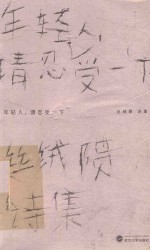 年轻人,
请忍受一下
年轻人,请忍受一下
丝绒陨
诗集